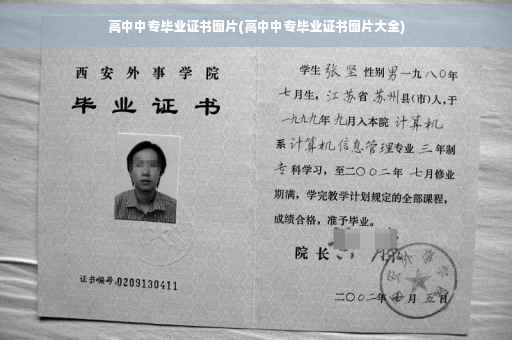 高中中专毕业证书图片(高中中专毕业证书图片大全)
西安外事学院
毕业证书
证书编号:0209130411
学生 张坚 性别 男 一九八〇年
七月生,江苏省 苏州县(市)人,于
一九九九年 九月入本院 计算机
系 计算机信息管理专业 三 年制
专 科学习,至二〇〇二年 七月修业
期满,学完教学计划规定的全部课程,
成绩合格,准予毕业。
院长
二〇〇二年 月 五日